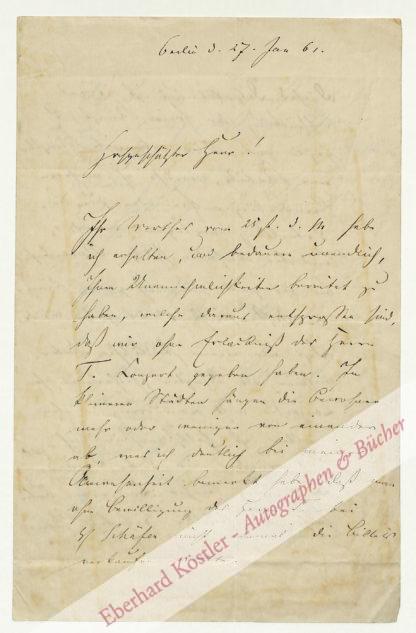 Berlin d. 27. Jan 61.
Hochgeschätzter Herr!
Ihr Werthes vom 25st. d. M habe
ich erhalten, und bedauere unendlich,
Ihnen Unannehmlichkeiten bereitet zu
haben, welche daraus entsprossen sind,
daß wir ohne Erlaubniß des Herrn
T. Conzert gegeben haben. In
kleineren Städten hängen die Bewohner
mehr oder weniger von einander
ab, was ich deutlich bei meiner
Anwesenheit bemerkt habe, daß man
ohne Bewilligung des bei
H Schäfer nicht die Billets
verkaufen
Eberhard Köstler - Autographen & Bücher